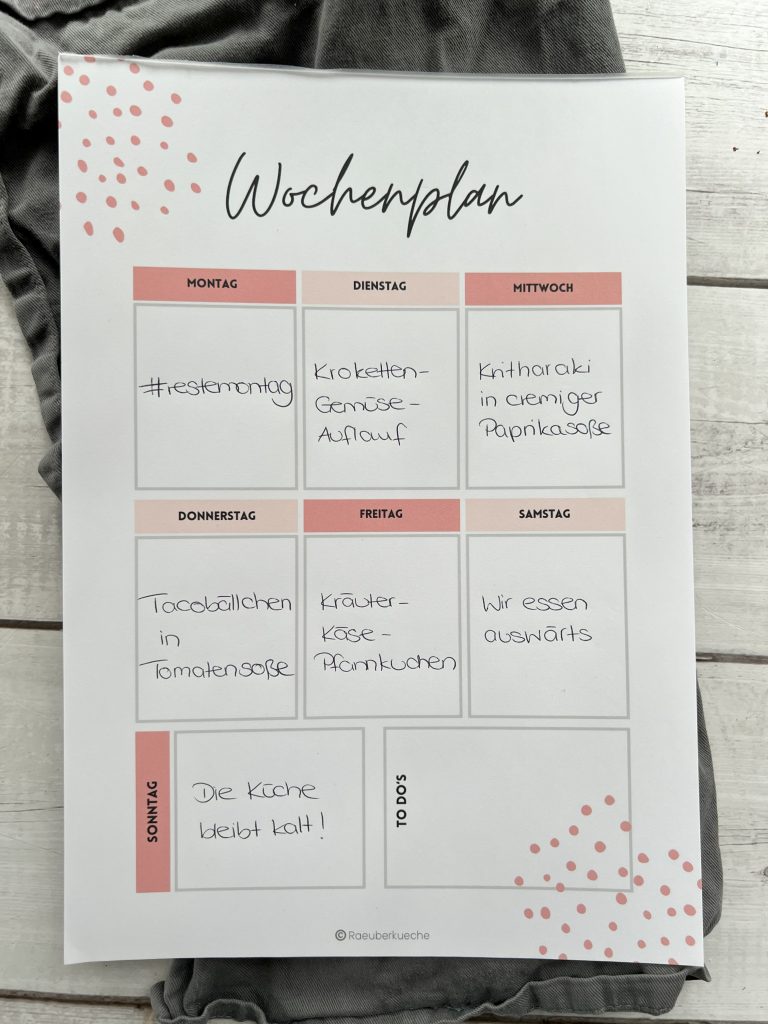 Wochenplan
MONTAG
DIENSTAG
MITTWOCH
#restemontag
Kroketten-
Gemüse-
Auflauf
Kritharaki
in cremiger
Paprikasoße
DONNERSTAG
FREITAG
SAMSTAG
Tacobällchen
in
Tomatensoße
Kräuter-
Käse-
Pfannkuchen
Wir essen
auswärts
SONNTAG
Die Küche
bleibt kalt!
TO DO'S
© Raeuberkueche